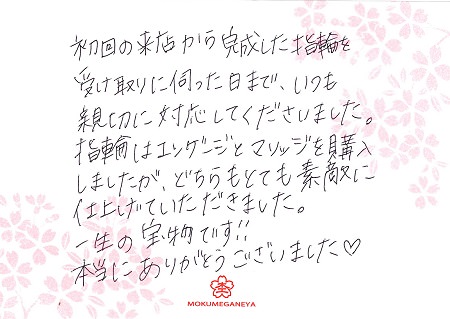 初回の来店から完成した指輪を
受け取りに伺った日まで、いつも
親切に対応してくださいました。
指輪はエンゲージとマリッジを購入
しましたが、どちらもとても素敵に
仕上げていただきました。
一生の宝物です!!
本当にありがとうございました♡
MOKUMEGANEYA